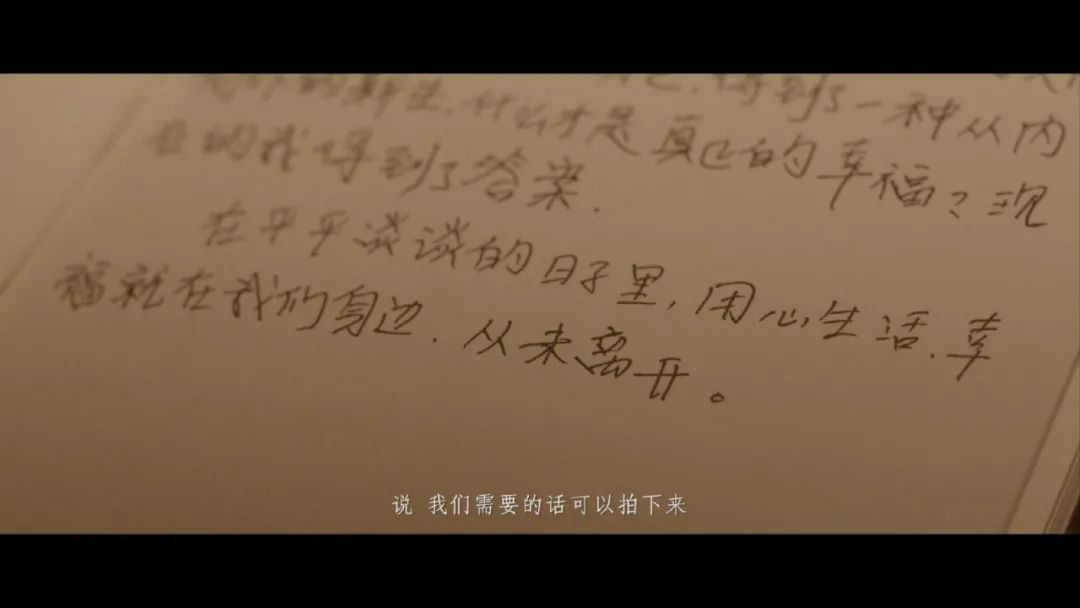 得到了一种从内
的新生.什么才是真正的幸福?现
在的我得到了答案.
在平平淡淡的日子里,用心生活.幸
福就在我们身边.从未离开。
说 我们需要的话可以拍下来